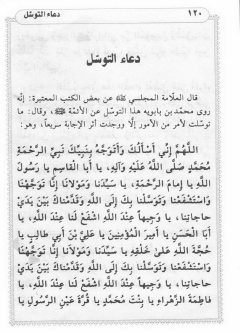 ١٢٠ دعاء التوسّل
دعاء التوسّل
قال العلّامة المجلسي ﷺ عن بعض الكتب المعتبرة: إنّه
روى محمّد بن بابويه هذا التوسل عن الأئمّة ﷺ، وقال: ما
توسّلت لأمر من الأمور إلّا ووجدت أثر الإجابة سريعاً، وهو:
اللَّهُمَّ إِنِّي أَسْأَلُكَ وَأَتَوَجَّهُ إِلَيْكَ بِنَبِيِّكَ نَبِيِّ الرَّحْمَةِ
مُحَمَّدٍ صَلَّى اللهُ عَلَيْهِ وَآلِهِ، يا أَبَا الْقاسِمِ يا رَسُولَ
اللهِ يا إِمامَ الرَّحْمَةِ، يا سَيِّدَنا وَمَوْلانا إِنّا تَوَجَّهْنا
وَاسْتَشْفَعْنا وَتَوَسَّلْنا بِكَ إِلَى اللهِ وَقَدَّمْناكَ بَيْنَ يَدَيْ
حاجاتِنا، يا وَجِيهاً عِنْدَ اللهِ اشْفَعْ لَنا عِنْدَ اللهِ، يا
أَبَا الْحَسَنِ يا أَمِيرَ الْمُؤْمِنِينَ يا عَلِيَّ بْنَ أَبِي طالِبٍ يا
حُجَّةَ اللهِ عَلى خَلْقِهِ يا سَيِّدَنا وَمَوْلانا إِنّا تَوَجَّهْنا
وَاسْتَشْفَعْنا وَتَوَسَّلْنا بِكَ إِلَى اللهِ وَقَدَّمْناكَ بَيْنَ يَدَيْ
حاجاتِنا، يا وَجِيهاً عِنْدَ اللهِ اشْفَعْ لَنا عِنْدَ اللهِ، يا
فاطِمَةَ الزَّهْراءِ يا بِنْتَ مُحَمَّدٍ يا قُرَّةَ عَيْنِ الرَّسُولِ يا